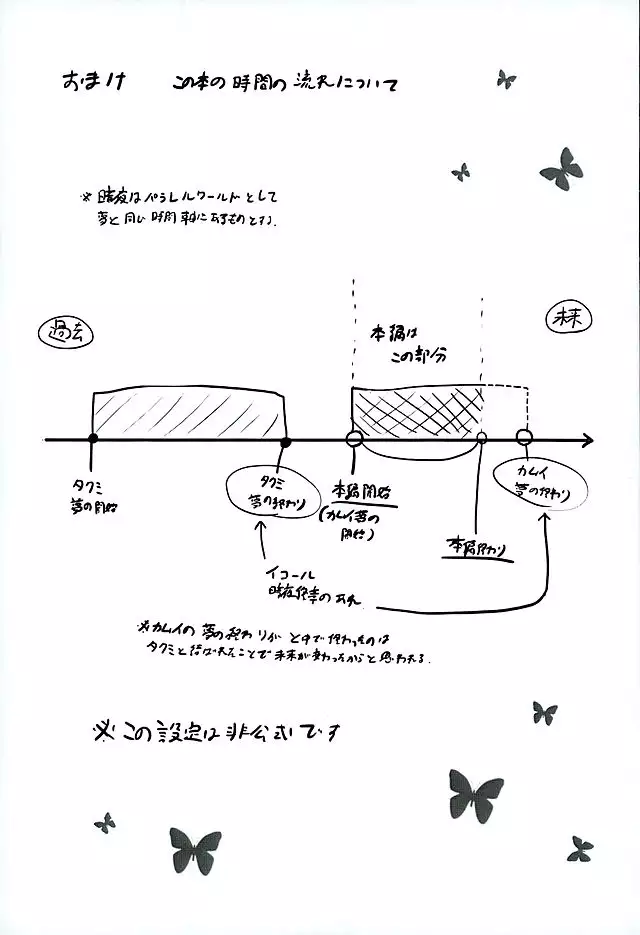 おまけ この本の時間の流れについて
※暗夜はパラレルワールドとして
夢と同じ時間軸にあるものとする.
過去
未来
本編は
この部分
タクミ
夢の開始
タクミ
夢の終わり
本編開始
(カムイ夢の
開始)
本編終わり
カムイ
夢の終わり
イコール
暗夜終章のあれ
※カムイの夢の終わりが途中で終わったのは
タクミと結ばれたことで未来が変わったからと思われる.
※この設定は非公式です